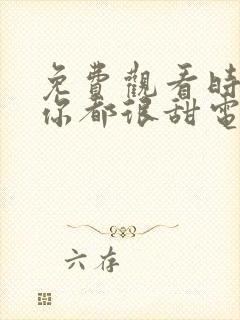 免費觀看時
你都很甜電
六存